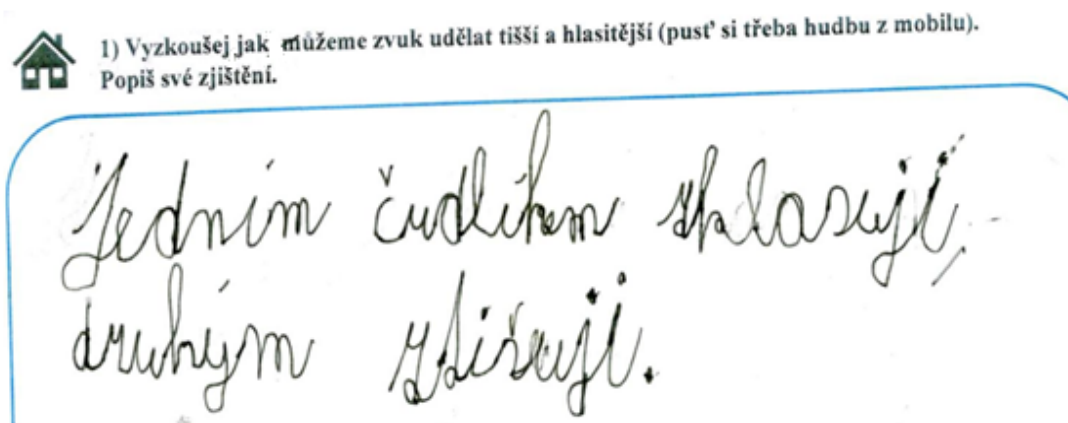 1) Vyzkoušej jak můžeme zvuk udělat tišší a hlasitější (pusť si třeba hudbu z mobilu).
Popiš své zjištění.
Jedním čudlíkem zhlasuji,
druhým ztišuji.